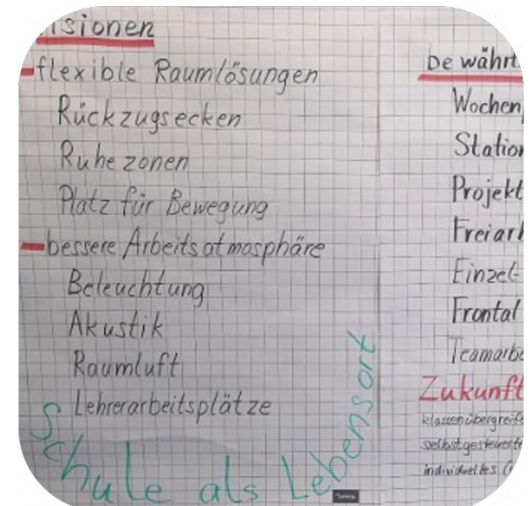 isionen
flexible Raumlösungen
Rückzugsecken
Ruhezonen
Platz für Bewegung
bessere Arbeitsatmosphäre
Beleuchtung
Akustik
Raumluft
Lehrerarbeitsplätze
Schule als Lebensort
bewährt
Wochen
Station
Projekt
Freiarb
Einzel-
Frontal
Teamarbe
Zukunft
klassenübergreife
selbstgesteuert
individuelles